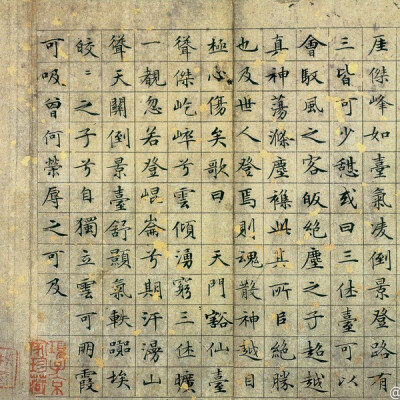 厓傑峰如臺氣凌倒景登路有
三皆可少憩或曰三休臺可以
會馭風之客皈絕塵之子超越
真神蕩滌塵襟此其所㠯絕勝
也及世人登焉則魂散神越目
極心傷矣歌曰 天門豁仙臺
聳傑屹崒兮雲傾湧窮三休曠
一覩忽若登崐崙兮期汗漫山
聳天關倒景臺舒顥氣軼囂埃
皎〻之子兮自獨立雲可朋霞
可吸曾何榮辱之可及